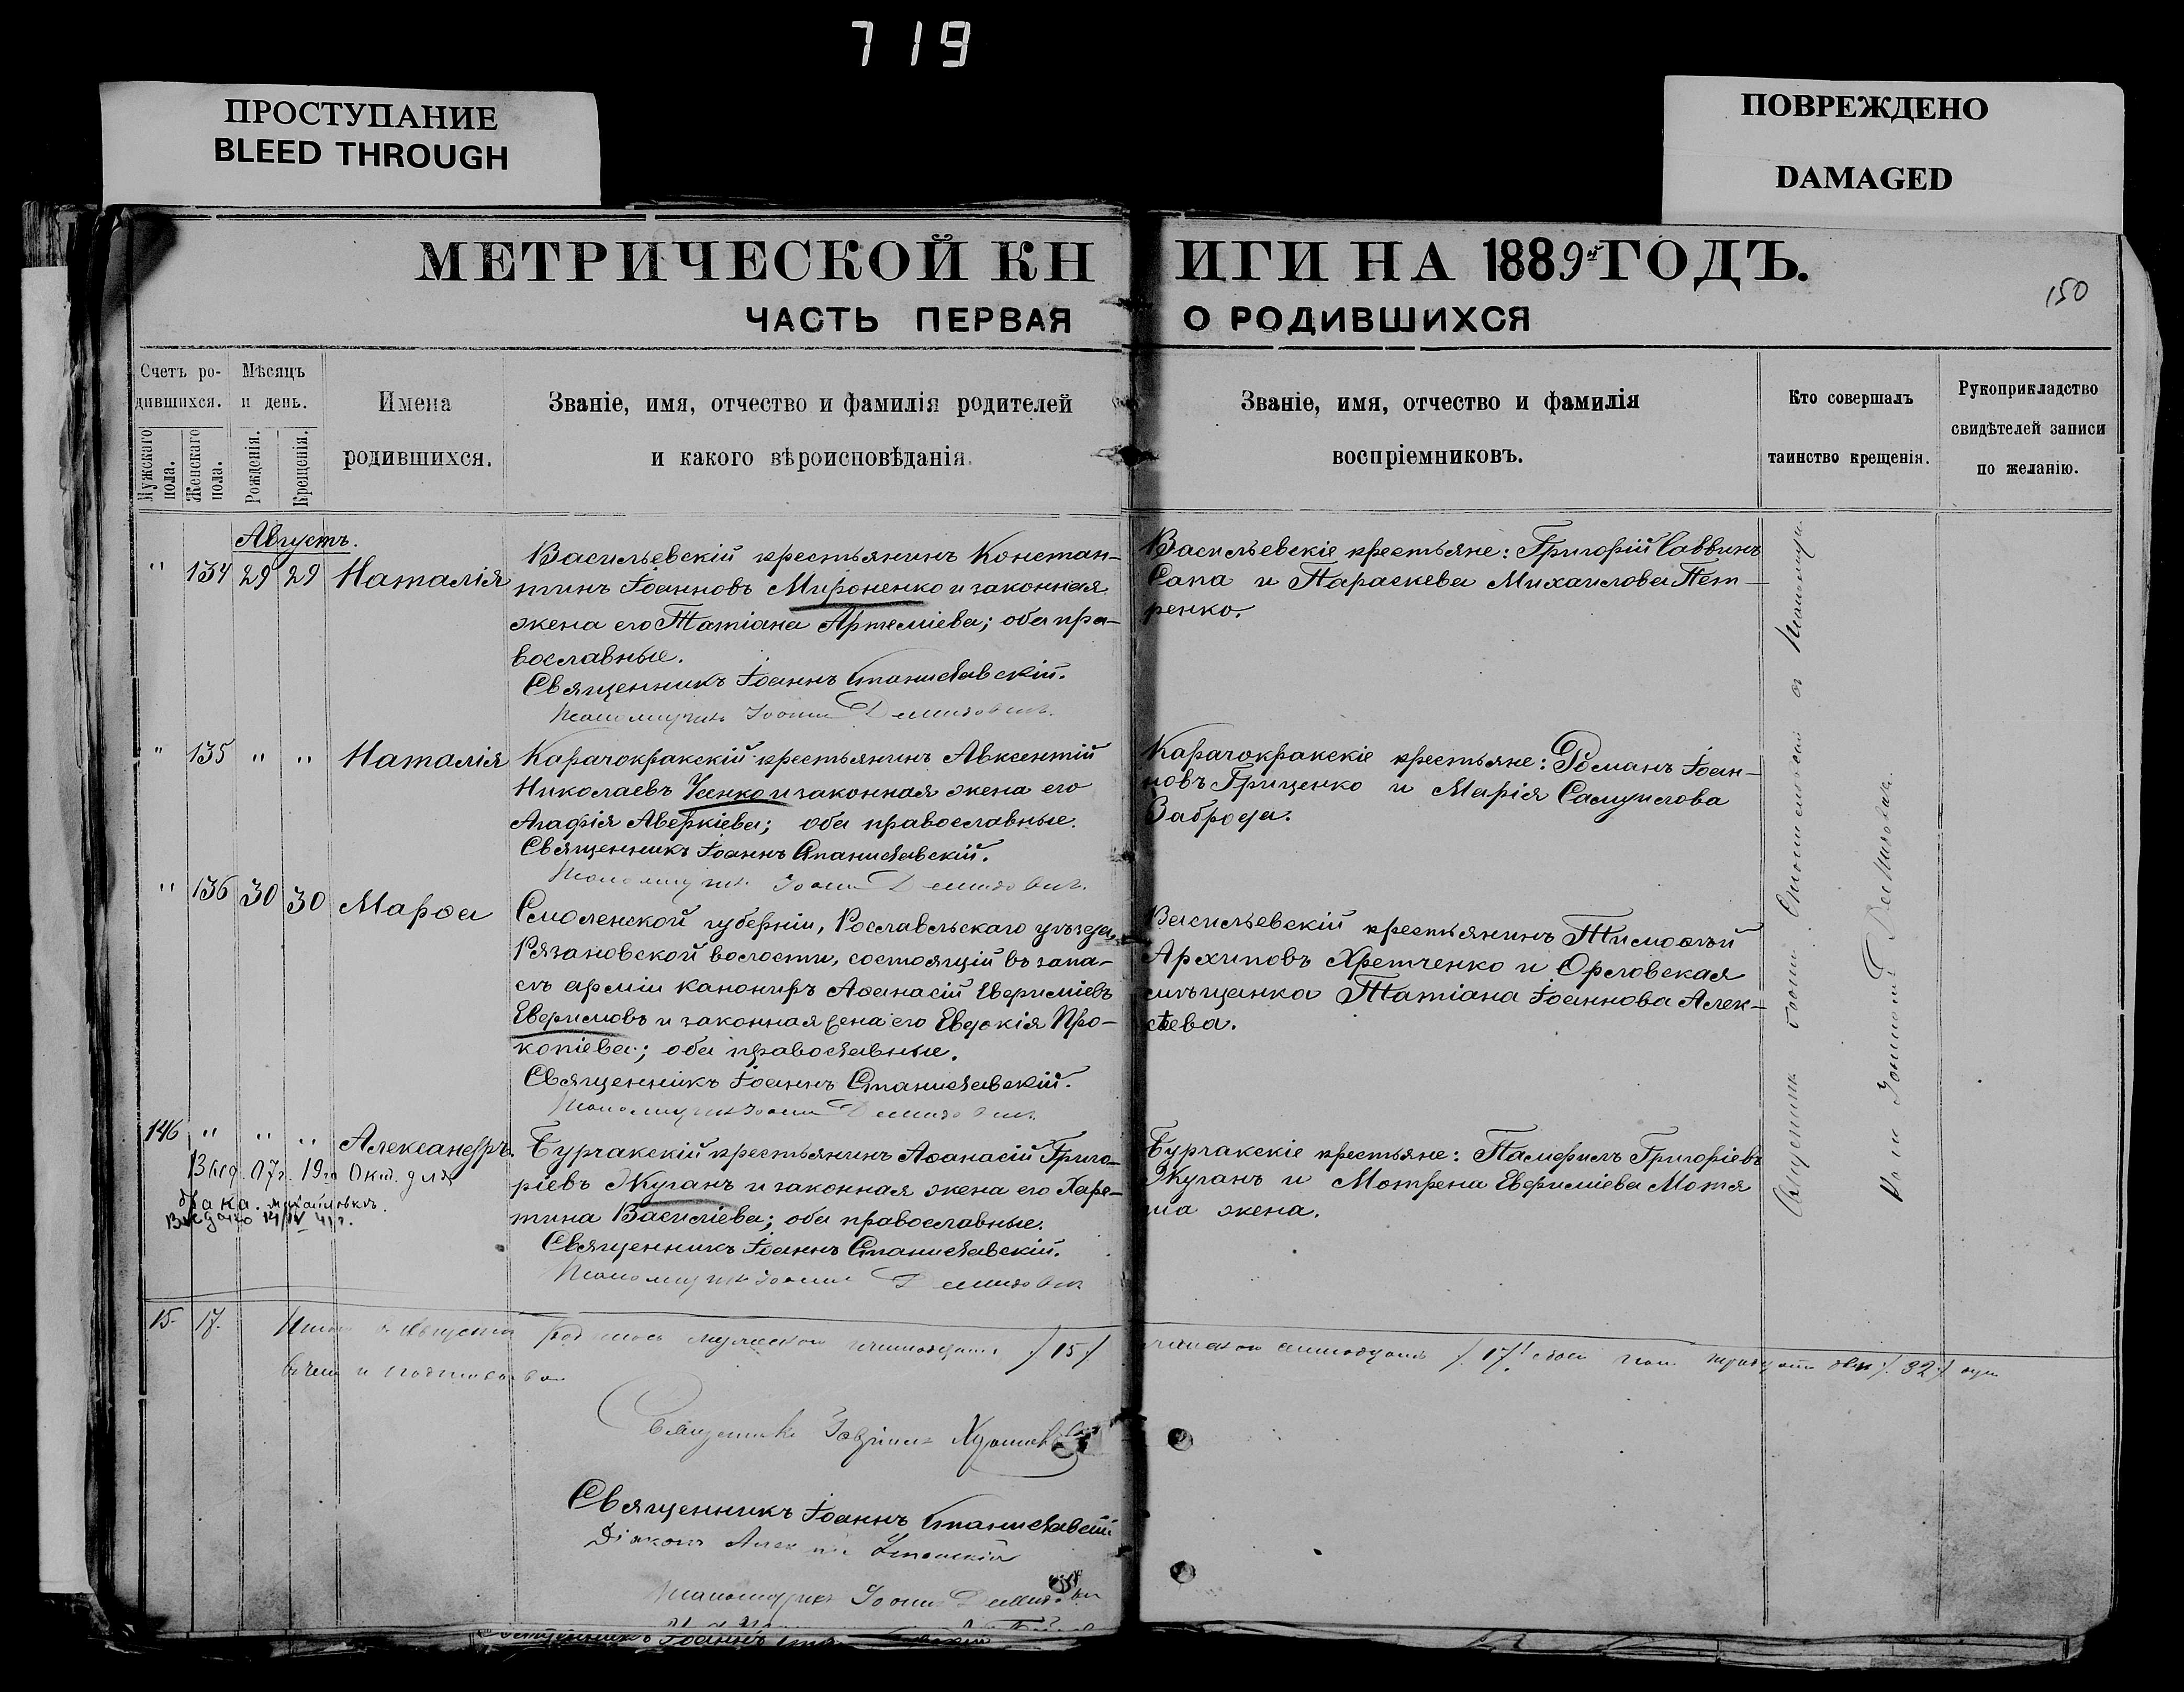 719
ПРОСТУПАНИЕ
BLEED THROUGH
ПОВРЕЖДЕНО
DAMAGED
МЕТРИЧЕСКОЙ КНИГИ НА 1889й ГОДЪ.
150
ЧАСТЬ ПЕРВАЯ О РОДИВШИХСЯ
Счетъ ро-
дившихся.
Мужскаго пола.
Женскаго пола.
Мѣсяцъ
и день.
Рожденія.
Крещенія.
Имена
родившихся.
Званіе, имя, отчество и фамилія родителей
и какого вѣроисповѣданія.
Званіе, имя, отчество и фамилія
воспріемниковъ.
Кто совершалъ
таинство крещенія.
Рукоприкладство
свидѣтелей записи
по желанію.
Августъ.
" 134 29 29 Наталія
Васильевскій крестьянинъ Констан-
тинъ Іоанновъ Мироненко и законная
жена его Татіана Артеміева; оба пра-
вославные.
Священникъ Іоаннъ Станиславскій.
Пономарь Іоаннъ Демидовичъ.
Васильевскіе крестьяне: Григорій Саввинъ
Сапа и Параскева Михаилова Пет-
ренко.
" 135 " " Наталія
Карачокракскій крестьянинъ Авксентій
Николаевъ Усенко и законная жена его
Агафія Аверкіева; оба православные.
Священникъ Іоаннъ Станиславскій.
Іоаннъ Демидовичъ.
Карачокракскіе крестьяне: Романъ Іоан-
новъ Гриценко и Марія Самуилова
Заброда.
" 136 30 30 Марѳа
Смоленской губерніи, Рославльскаго уѣзда,
Рязановской волости, состоящій въ запа-
сѣ арміи канониръ Аѳанасій Евфиміевъ
Евфимовъ и законная жена его Евдокія Про-
копіева; оба православные.
Священникъ Іоаннъ Станиславскій.
Іоаннъ Демидовичъ.
Васильевскій крестьянинъ Тимоѳей
Архиповъ Хретченко и Орловская
мѣщанка Татіана Іоаннова Алек-
сѣева.
146 " " " Александръ.
Вид. 07г. 19го Окт. для
брака.
Видано 14/IV 41г.
Бурчакскій крестьянинъ Аѳанасій Григо-
ріевъ Жуганъ и законная жена его Хари-
тина Василіева; оба православные.
Священникъ Іоаннъ Станиславскій.
Іоаннъ Демидовичъ
Бурчакскіе крестьяне: Памфилъ Григоріевъ
Жуганъ и Мотрена Евфиміева
жена.
Священникъ Іоаннъ Станиславскій
15. 17.
Итого въ Августѣ родилось мужескаго пятнадцать /15/ женскаго семнадцать /17/ обоего пола тридцать два /32/ душ
въ чемъ и подписываемся
Священникъ Гавріилъ
Священникъ Іоаннъ Станиславскій
Діаконъ
Іоаннъ Демидовичъ